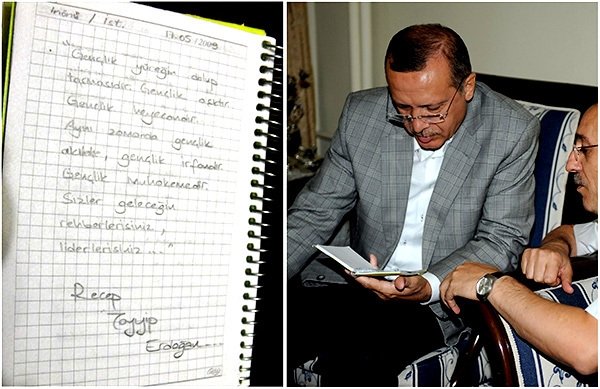 İnönü / İst. 17.05/2009
"Gençlik yüreğin dolup
taşmasıdır. Gençlik aşktır.
Gençlik heyecandır.
Aynı zamanda gençlik
akıldır, gençlik irfandır.
Gençlik muhakemedir.
Sizler geleceğin
rehberlerisiniz,
liderlerisiniz..."
Recep
Tayyip
Erdoğan...